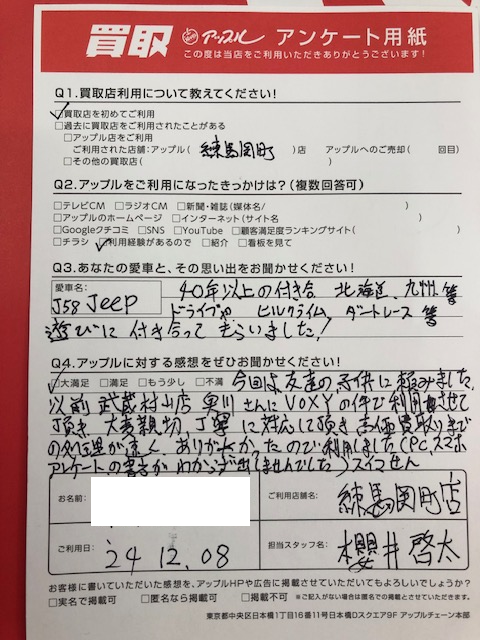 買取 アップル アンケート用紙
この度は当店をご利用いただきありがとうございます!
Q1.買取店利用について教えてください!
☑買取店を初めてご利用
□過去に買取店をご利用されたことがある
□アップル店をご利用
ご利用された店舗:アップル( 練馬関町 )店 アップルへのご売却( 回目)
□その他の買取店( )
Q2.アップルをご利用になったきっかけは?(複数回答可)
□テレビCM □ラジオCM □新聞・雑誌(媒体名/ )
□アップルのホームページ □インターネット(サイト名 )
□Googleクチコミ □SNS □YouTube □顧客満足度ランキングサイト( )
□チラシ ☑利用経験があるので □紹介 □看板を見て
Q3.あなたの愛車と、その思い出をお聞かせください!
愛車名: J58 Jeep
40年以上の付き合 北海道、九州等
ドライブや ヒルクライム、ダートレース 等
遊びに付き合ってもらいました!
Q4.アップルに対する感想をぜひお聞かせください!
☑大満足 □満足 □もう少し □不満 今回は友達の子供に頼みました、
以前 武蔵村山店 実川さんにVOXYの件で利用させて
頂き 大変親切、丁寧に対応して頂き 高価買取りまで
の処理が速く ありがたかったので利用しました(PC、スマホ
アンケートの書き方がわからず出しませんでした)スイマせん
お名前:
ご利用店舗名: 練馬関町店
ご利用日: '24 12.08
担当スタッフ名: 櫻井啓太
お客様に書いていただいた感想を、アップルHPや広告に掲載させていただいてもよろしいでしょうか?
□実名で掲載可 □匿名なら掲載可 □掲載不可 ※ご記入がない場合は匿名での掲載とさせていただきます。
東京都中央区日本橋1丁目16番11号日本橋Dスクエア9F アップルチェーン本部